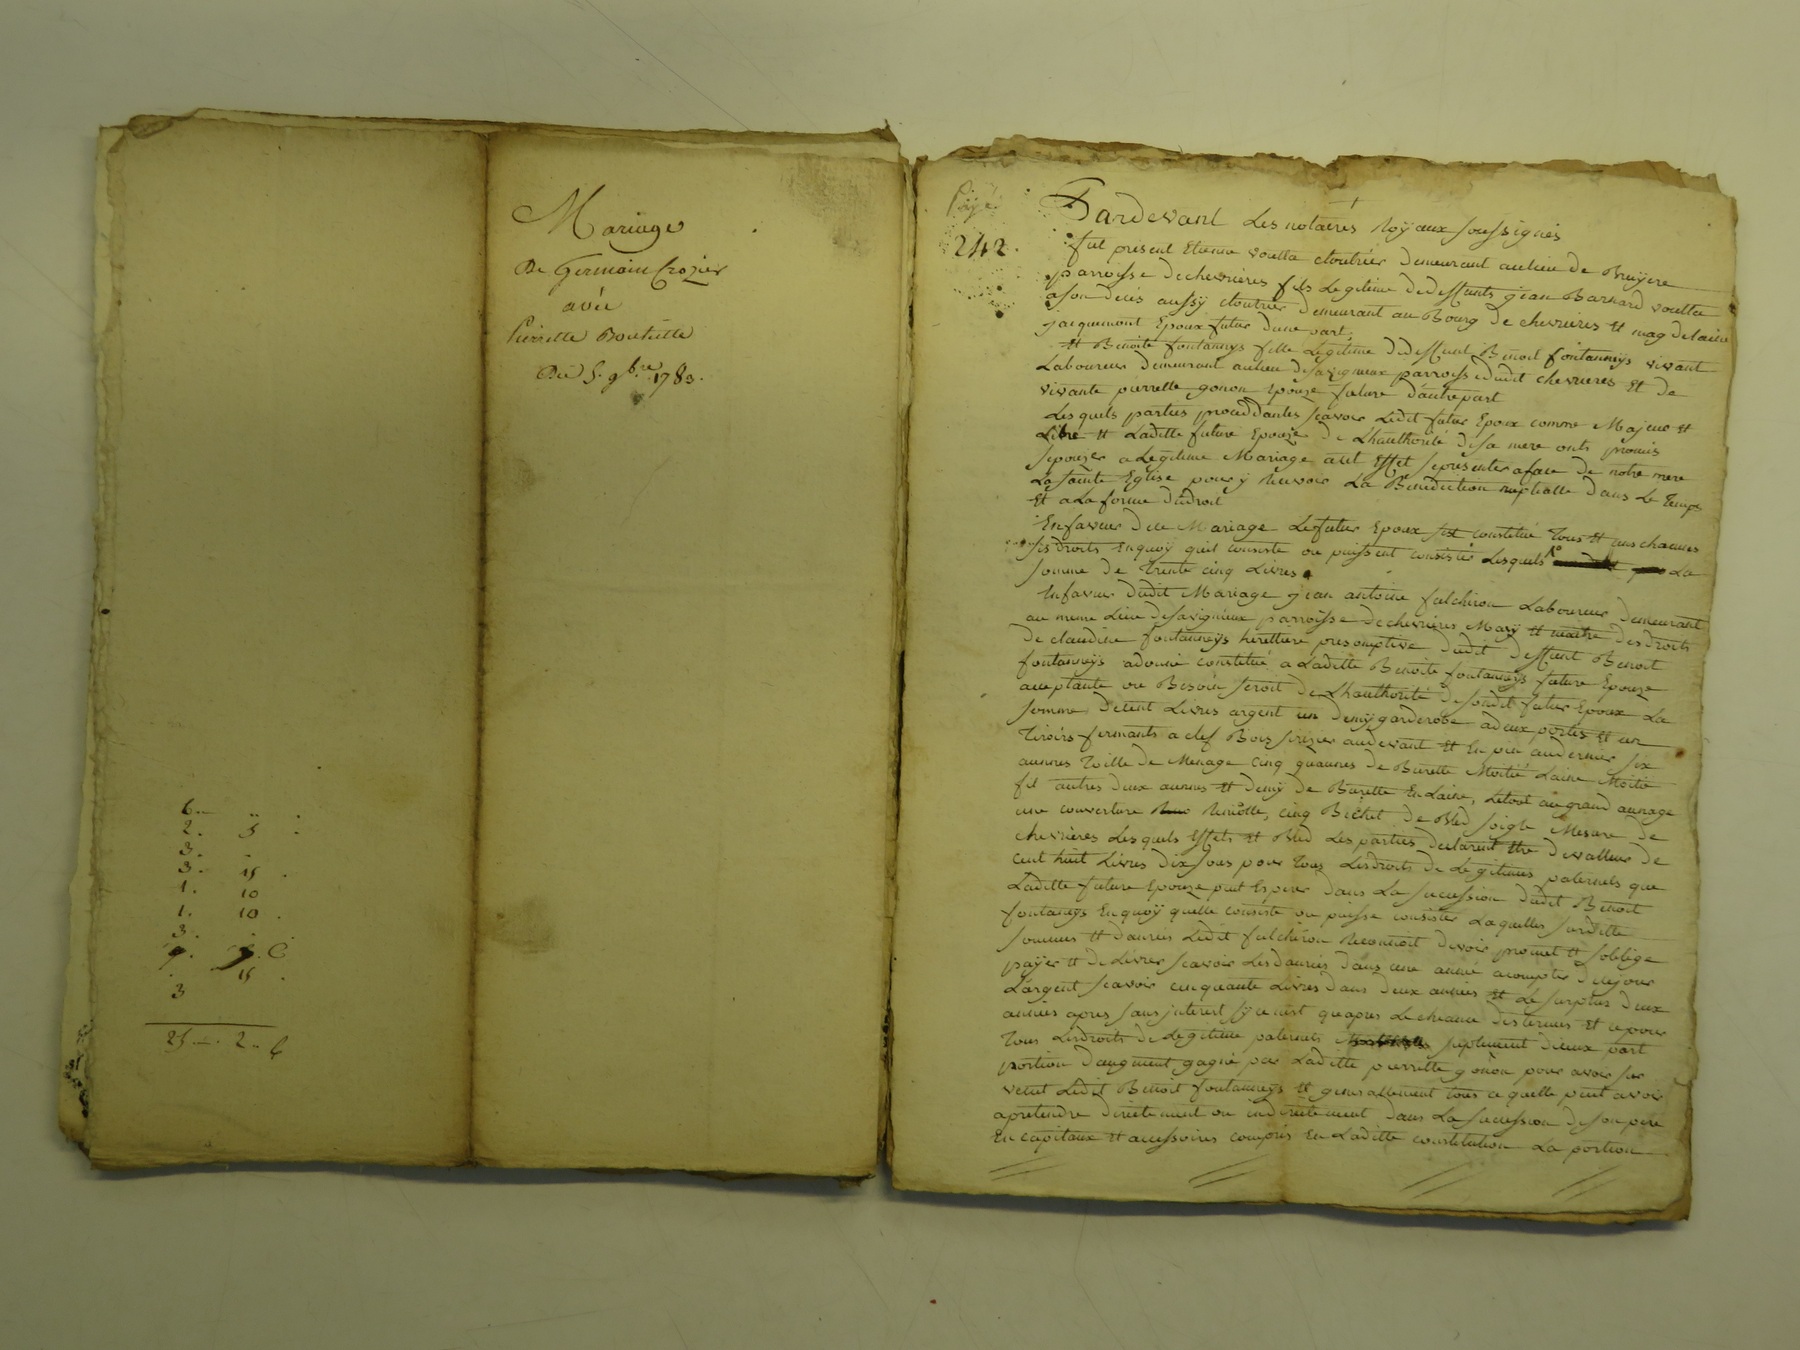 Mariage
De Germain Crozier
avec
Pierrette Bouteille
Du 5. 9bre 1783.
6 "
2. 5
3.
3. 15
1. 10
1. 10
3.
15
3
25 2 6
Payé
242.
Pardevant Les notaires Royaux soussignés
fut present Etienne voutta cloutrier demeurant au lieu de Bruyere
parroisse de chevrieres fils Legitime de deffunts jean Barnard voutta
a son deces aussy cloutrier demeurant au Bourg de chevrieres et magdelaine
jacquemont Epoux futur d'une part.
Et Benoite fontanneys fille Legitime de deffunt Benoit fontanneys vivant
Laboureur demeurant au lieu de savigneux parroisse dudit chevrieres Et de
vivante pierrette gonon Epouze future d'autre part
Lesquels parties proceddantes scavoir Ledit futur Epoux comme Majeur et
Libre et Laditte future Epouze de L'hauthorité de sa mere onts promis
sepouzer a Legitime Mariage a cet Effet se presenter a face de notre mere
La sainte Eglise pour y Recevoir La Benediction nuptialle dans Le Temps
Et a La forme du droit
En faveur du Mariage Le futur Epoux sest constitué Tous et uns chacuns
ses droits En quoy quil consiste ou puissent consister Lesquels La
somme de Trente cinq Livres
En faveur dudit Mariage jean antoine fulchiron Laboureur demeurant
au meme Lieu de savigneux parroisse de chevrieres Mary et maitre des droits
de claudine fontanneys herettiere presomptive dudit deffunt Benoit
fontanneys a donné constitué a Laditte Benoite fontanneys future Epouze
acceptante ou Besoin seroit de L'hauthorité de sondit futur Epoux La
somme de cent Livres argent un demy garderobe a deux portes et un
Tiroirs fermants a clef Bois serizier au devant et En pin au dernier six
aunnes Toille de Menage cinq quaunes de Burette Moitié Laine Moitié
fil autres deux aunnes et demy de Burette En Laine, Letout au grand aunage
une couverture cinq Bichet de Bled soigle Mesure de
chevrieres Lesquels Effets et Bled Les parties declarent Etre de valleur de
cent huit Livres dix sous pour Tous Les droits de Legitimes paternels que
Laditte future Epouze peut Esperer dans La succession dudit Benoit
fontaneys En quoy quelle consiste ou puisse consister Laquelles susditte
sommes et danrées Ledit fulchiron Reconnoit devoir promet et soblige
payer et de Livrer scavoir Les danrées dans une année a compter de ce jour
L'argent scavoir cinquante Livres dans deux années et Le surplus deux
années apres sans interest sy ce n'est quapres Lecheance des termes Et ce pour
Tous Les droits de Legitime paternels suplement diceux part
portion daugment gagné par Laditte pierrette gonon pour avoir sur
vecut Ledit Benoit fontanneys et generallement tous ce quelle peut avoir
a pretendre directement ou indirectement dans La succession de son pere
En capitaux et accessoires compris En Laditte constitution La portion